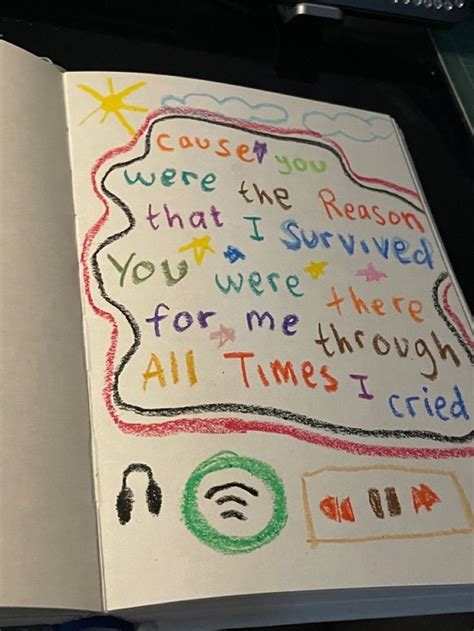 cause you
were the Reason
that I Survived
You were there
for me through
All Times I cried